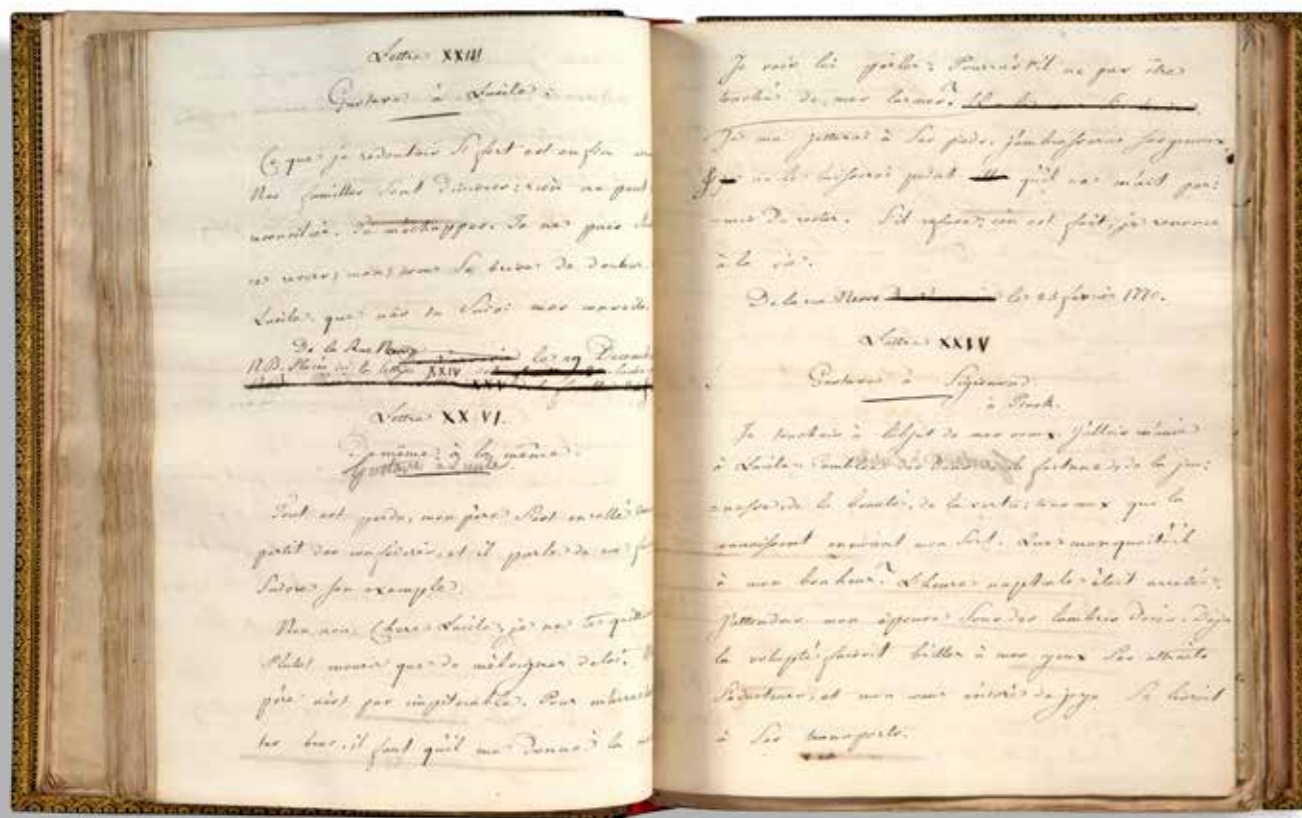 Lettre XXIII
Gustave à Lucile.
Ce que je redoutois si fort est enfin
Nos familles sont divisées; rien ne peut
Je ne puis
Lucile, que n'as tu suivi mon
De la Rue Neuve le 19 Decem
N.B. Placés ici la lettre XXIV
XXV
Lettre XXVI.
Du même à la même.
Gustave à Lucile
Tout est perdu, mon père s'est enrollé
parti des confédérés, et il parle de me
suivre son exemple.
Non non, Chere Lucile, je ne te quitte
Plutot mourir que de m'éloigner de toi.
père n'est pas impitoyable. Pour m'arrach
tes bras, il faut qu'il me donne la
Je vais lui parler; Pourra-t'il ne pas être
touché de mes larmes?
Je me jetterai à ses pieds, j'embrasserai ses genoux
ne les laisserai point qu'il ne m'ait per:
mis de rester. S'il refuse, c'en est fait, je renonce
à la vie.
De la rue Neuve le 23 fevrier 1770.
Lettre XXIV
Gustave à Sigismond
à Pinsk.
Je touchois à l'objet de mes voeux. J'allois m'unir
à Lucile. Comblée des dons de la fortune, de la jeu:
nesse, de la beauté, de la vertu; tous ceux qui la
connoissent envioient mon sort. Que manquoit-il
à mon bonheur? L'heure nuptiale étoit arretée.
J'attendois mon épouse sous des lambris dorés. Deja
la volupté faisoit briller à mes yeux ses attraits
seducteurs, et mon coeur enivré de joye se livroit
à ses transports.